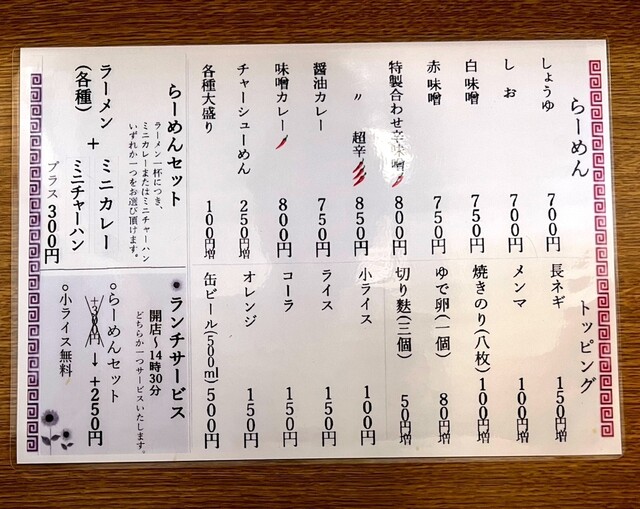 らーめん
しょうゆ 700円
しお 700円
白味噌 750円
赤味噌 750円
特製合わせ辛味噌 800円
〃 超辛 850円
醤油カレー 750円
味噌カレー 800円
チャーシューめん 250円増
各種大盛り 100円増
トッピング
長ネギ 150円増
メンマ 100円増
焼きのり(八枚) 100円増
ゆで卵(一個) 80円増
切り麩(三個) 50円増
小ライス 100円
ライス 150円
コーラ 150円
オレンジ 150円
缶ビール(500ml) 500円
らーめんセット
ラーメン一杯につき、
ミニカレーまたはミニチャーハン
いずれか一つをお選び頂けます。
ラーメン + ミニカレー
(各種) ミニチャーハン
プラス300円
●ランチサービス
開店〜14時30分
どちらか一つサービスいたします。
○らーめんセット
+300円→+250円
○小ライス無料